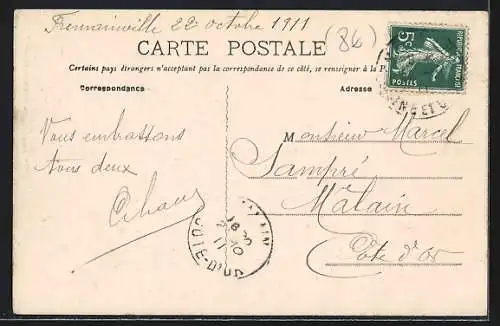 Fremainville 22 octobre 1911
(86)
CARTE POSTALE
Certains pays étrangers n'acceptant pas la correspondance de ce côté, se renseigner à la P
Correspondance
Adresse
5c
REPUBLIQUE FRANÇAISE
POSTES
NE ET O
Vous embrassons
tous deux
Monsieur Marcel
Sampré
Malain
Côte d'or
MALAIN
18
23 10
11
COTE-D'OR